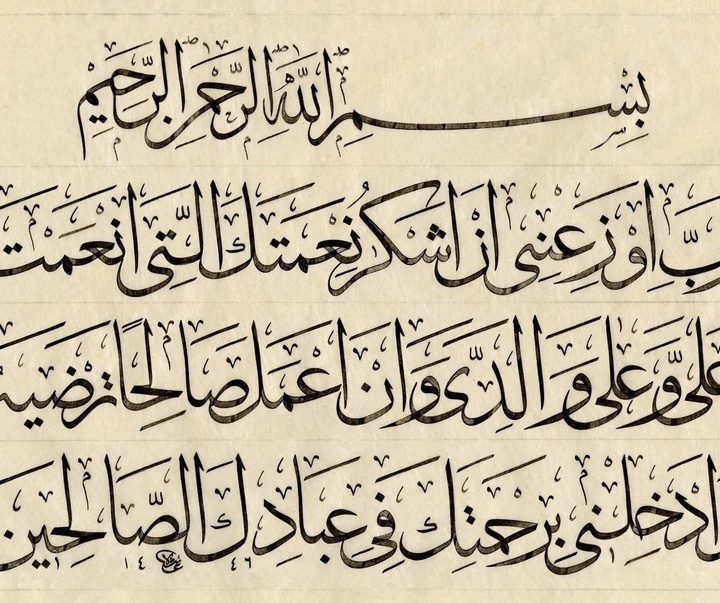 بِسْمِ اللّٰهِ الرَّحْمٰنِ الرَّحِيمِ
رَبِّ اَوْزِعْنِي اَنْ اَشْكُرَ نِعْمَتَكَ الَّتِي اَنْعَمْتَ
عَلَيَّ وَعَلٰى وَالِدَيَّ وَاَنْ اَعْمَلَ صَالِحًا تَرْضٰيهُ
وَاَدْخِلْنِي بِرَحْمَتِكَ فِي عِبَادِكَ الصَّالِحِينَ
١٤٤٦